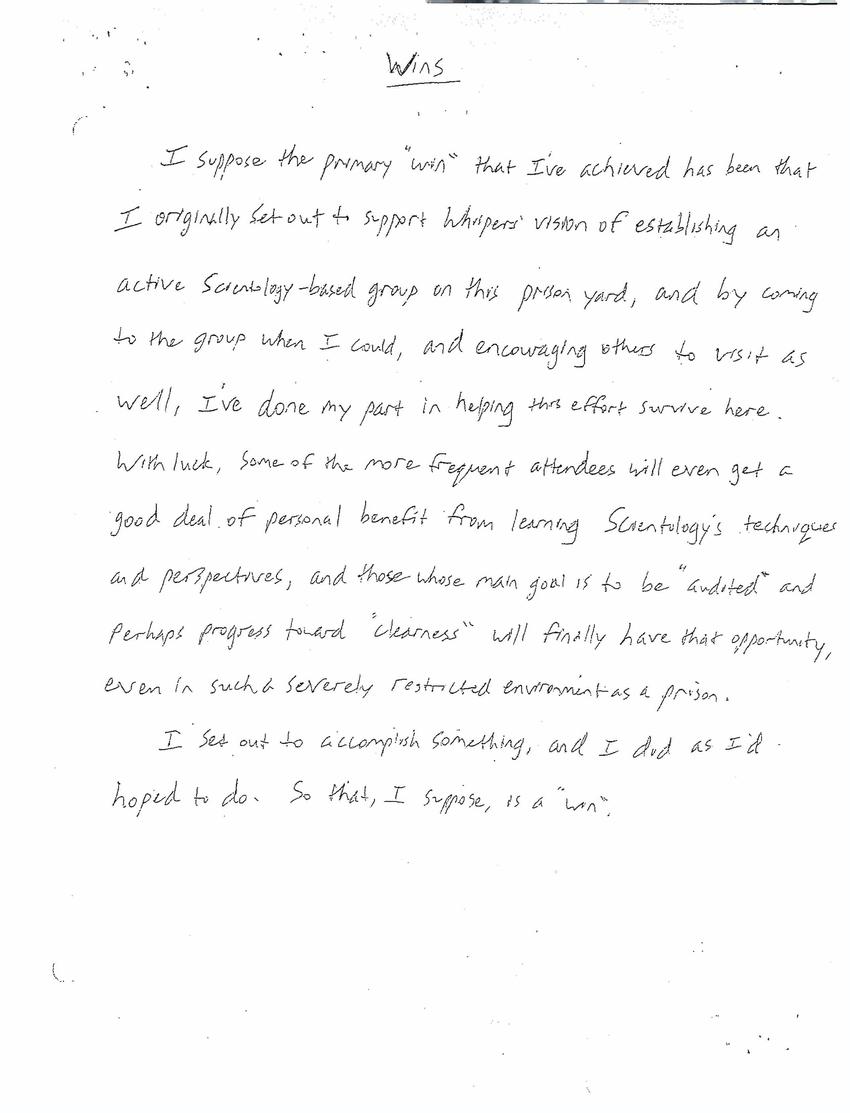 Wins
I suppose the primary "win" that I've achieved has been that
I originally set out to support Whispers' vision of establishing an
active Scientology-based group on this prison yard, and by coming
to the group when I could, and encouraging others to visit as
well, I've done my part in helping this effort survive here.
With luck, some of the more frequent attendees will even get a
good deal of personal benefit from learning Scientology's techniques
and perspectives, and those whose main goal is to be "audited" and
perhaps progress toward "clearness" will finally have that opportunity,
even in such a severely restricted environment as a prison.
I set out to accomplish something, and I did as I'd
hoped to do. So that, I suppose, is a "win".